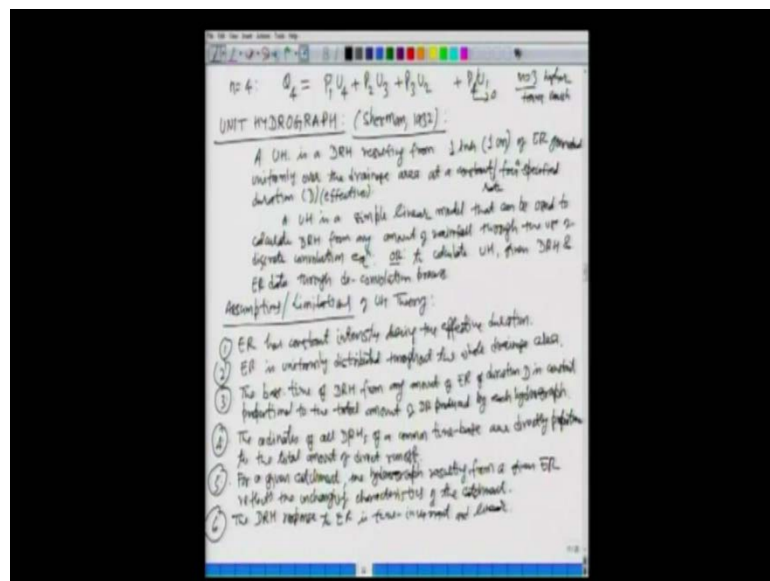 n=4: Q4 = P1U4 + P2U3 + P3U2 + P4U1
UNIT HYDROGRAPH: (Sherman, 1932):
A UH is a DRH resulting from 1 Inch (1 cm) of ER generated
uniformly over the drainage area at a constant rate specified
duration (D)/(effective).
A UH is a simple linear model that can be used to
calculate DRH from any amount of rainfall through the use of
discrete convolution eqn. OR to calculate UH, given DRH &
ER data through de-convolution
Assumptions/Limitations of UH Theory:
1 ER has constant intensity during the effective duration.
2 ER is uniformly distributed throughout the whole drainage area.
3 The base time of DRH from any amount of ER of duration D is constant
proportional to the total amount of DR produced by each hydrograph.
4 The ordinates of all DRHs of a common time-base are directly
to the total amount of direct runoff.
5 For a given catchment, the hydrograph resulting from a given ER
reflects the unchanging characteristics of the catchment.
6 The DRH response to ER is time-invariant and linear.